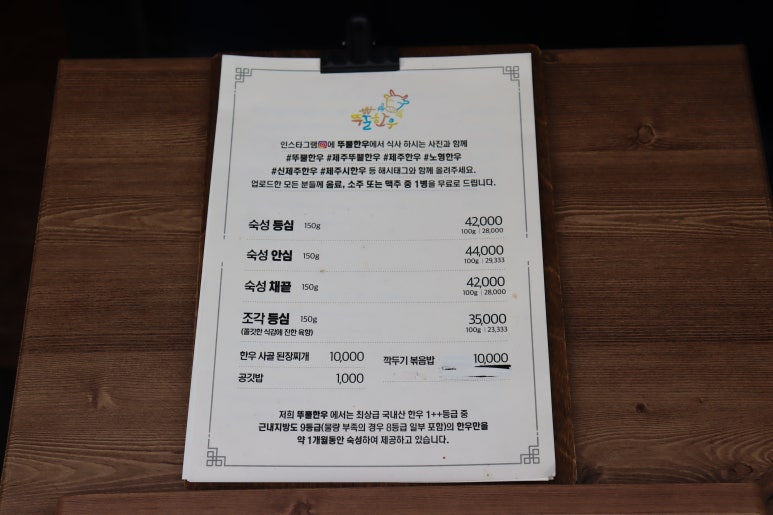 뚜뿔한우
인스타그램에 뚜뿔한우에서 식사 하시는 사진과 함께
#뚜뿔한우 #제주뚜뿔한우 #제주한우 #노형한우
#신제주한우 #제주시한우 등 해시태그와 함께 올려주세요.
업로드한 모든 분들께 음료, 소주 또는 맥주 중 1병을 무료로 드립니다.
숙성 등심 150g 42,000
100g | 28,000
숙성 안심 150g 44,000
100g | 29,333
숙성 채끝 150g 42,000
100g | 28,000
조각 등심 150g 35,000
(쫄깃한 식감에 진한 육향) 100g | 23,333
한우 사골 된장찌개 10,000 깍두기 볶음밥 10,000
공깃밥 1,000
저희 뚜뿔한우 에서는 최상급 국내산 한우 1++등급 중
근내지방도 9등급(물량 부족의 경우 8등급 일부 포함)의 한우만을
약 1개월동안 숙성하여 제공하고 있습니다.